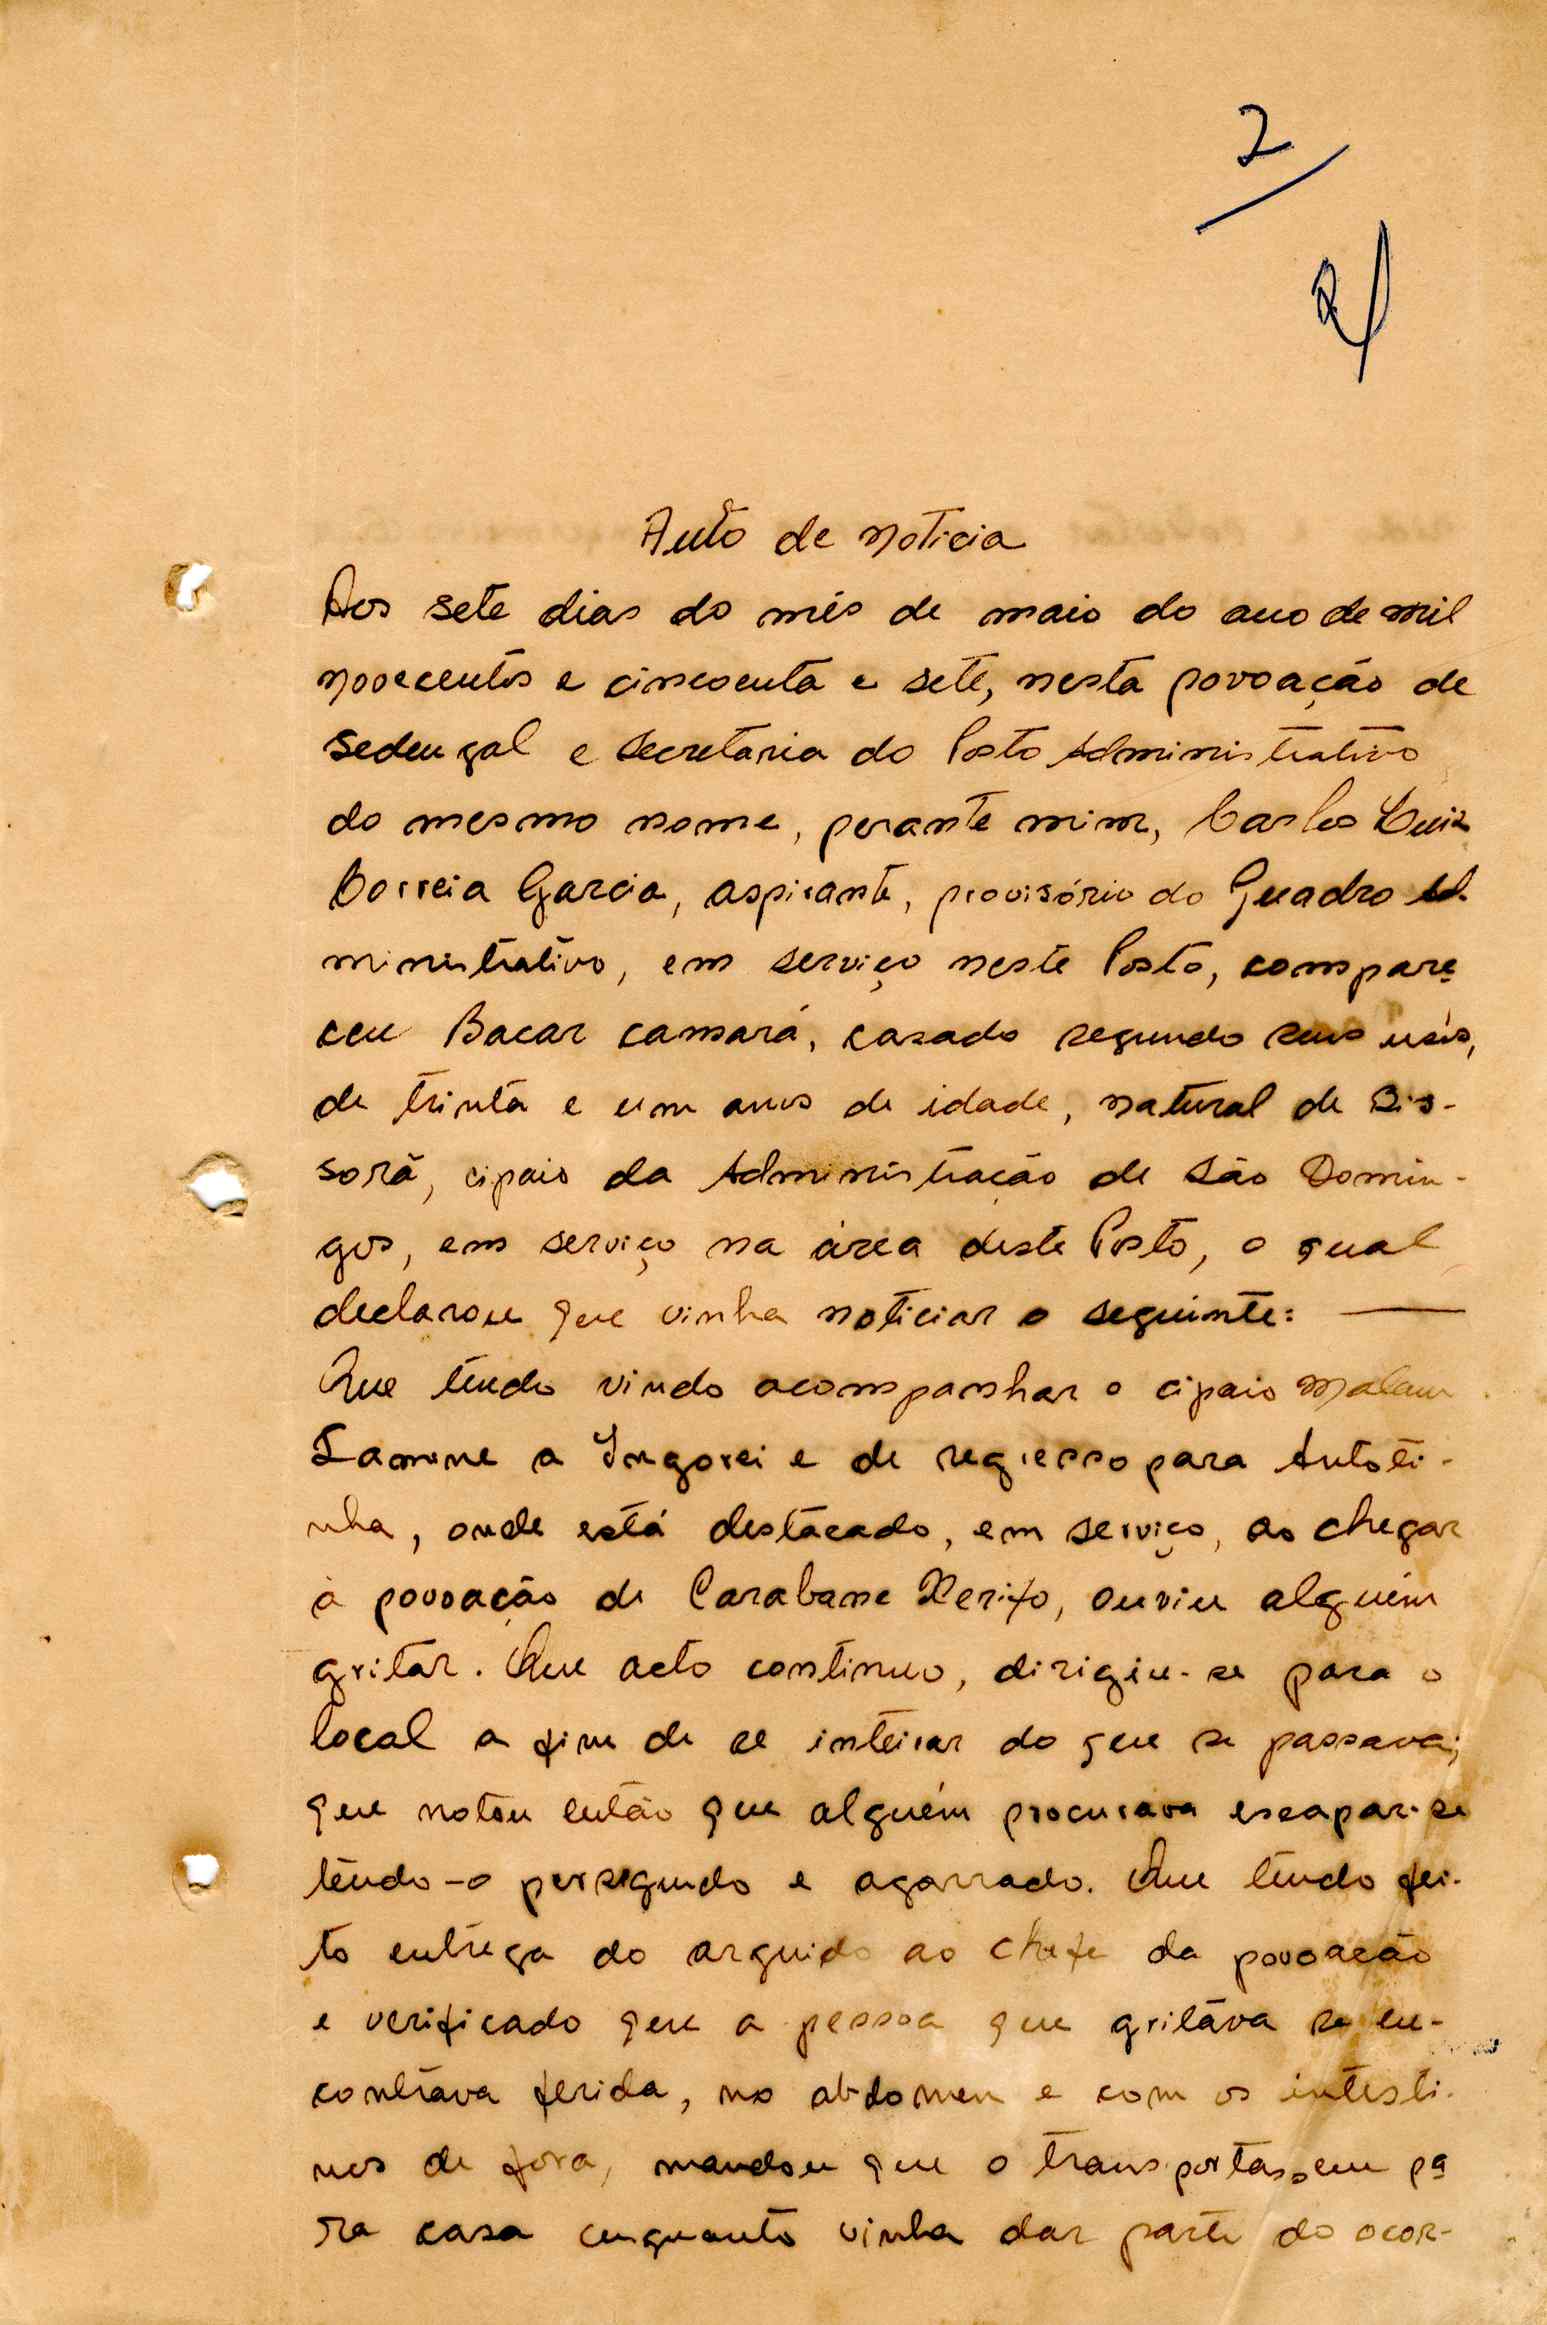 2
Auto de noticia
Aos sete dias do mês de maio do ano de mil
novecentos e cincoenta e sete, nesta povoação de
Sedengal e secretaria do Posto Administrativo
do mesmo nome, perante mim, Carlos Luiz
Correia Garcia, aspirante, provisório do Quadro Ad-
ministrativo, em serviço neste Posto, compare
ceu Bacar camará, casado segundo seus usos,
de trinta e um anos de idade, natural de Bis-
sorã, cipaio da Administração de São Domin-
gos, em serviço na área deste Posto, o qual
declarou que vinha noticiar o seguinte:
Que tendo vindo acompanhar o cipaio Malam
Lamine a Ingorei e de regresso para Antoti-
nha, onde está destacado, em serviço, ao chegar
à povoação de Carabane Xerifo, ouviu alguém
gritar. Que acto continuo, dirigiu-se para o
local a fim de se inteirar do que se passava;
que notou então que alguém procurava escapar-se
tendo-o perseguido e agarrado. Que tendo fei-
to entrega do arguido ao chefe da povoação
e verificado que a pessoa que gritava se en-
contrava ferida, no abdomen e com os intesti-
nos de fora, mandou que o transportassem pa
ra casa enquanto vinha dar parte do ocor-